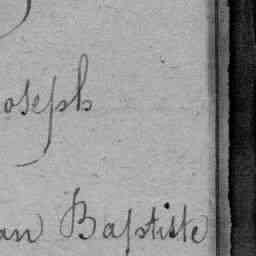 oseph
an Baptiste